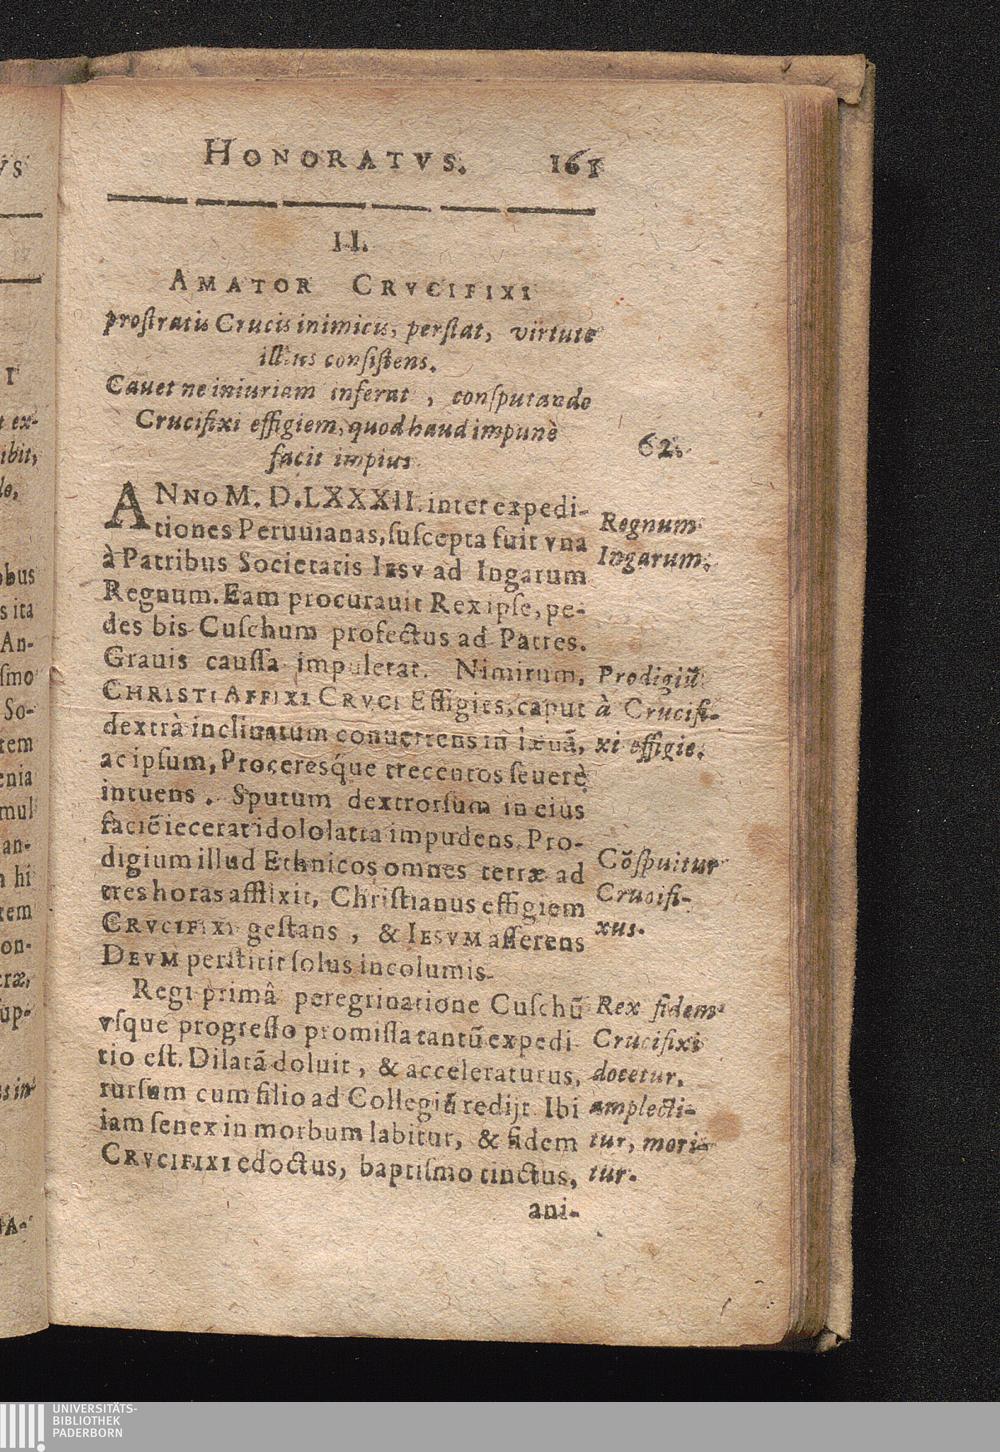 HONORATVS. 161
II.
AMATOR CRVCIFIXI
prostratis Crucis inimicis, perstat, virtute
illius consistens.
Cauet ne iniuriam inferat, consputando
Crucifixi effigiem, quod haud impunè
facit impius.
62.
ANNO M. D. LXXXII. inter expedi-
tiones Peruuianas, suscepta fuit vna
à Patribus Societatis IESV ad Ingarum
Regnum. Eam procurauit Rex ipse, pe-
des bis Cuschum profectus ad Patres.
Grauis caussa impulerat. Nimirum,
CHRISTI AFFIXI CRVCI Effigies, caput
dextrà inclinatum conuertens in læuã,
ac ipsum, Proceresq́ue trecentos seuerè
intuens. Sputum dextrorsum in eius
faciẽ iecerat idololatra impudens. Pro-
digium illud Ethnicos omnes terræ ad
tres horas afflixit, Christianus effigiem
CRVCIFIXI gestans, & IESVM asserens
DEVM perstitit solus incolumis.
Regi primâ peregrinatione Cuschũ
vsque progresso promissa tantũ expedi-
tio est. Dilatã doluit, & acceleraturus,
rursum cum filio ad Collegiũ redijt. Ibi
iam senex in morbum labitur, & fidem
CRVCIFIXI edoctus, baptismo tinctus,
ani-
Regnum
Ingarum.
Prodigiũ
à Crucifi-
xi effigie.
Cõspuitur
Crucifi-
xus.
Rex fidem
Crucifixi
docetur,
amplecti-
tur, mori-
tur.
VS
I
t ex-
ibit,
do,
obus
s ita
An-
smo
So-
tem
enia
mul
an-
n hi
tem
on-
eræ,
sup-
s in
IA-
UNIVERSITÄTS-
BIBLIOTHEK
PADERBORN